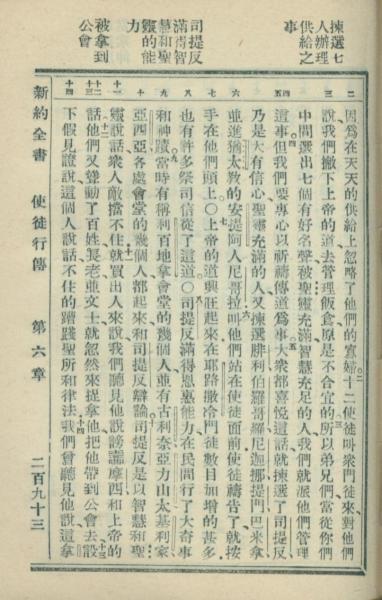 揀選七
人辦理
供給之
事
司提反
滿得智
慧和聖
靈的能
力
被拿到
公會
因爲在天天的供給上忽略了他們的寡婦十二使徒叫衆門徒來對他們
說我們撇下上帝的道去管理飯食原是不合宜的所以弟兄們當從你們
中間選出七個有好名聲被聖靈充滿智慧充足的人我們就派他們管理
這事但我們要專心以祈禱傳道爲事大衆都喜悅這話就揀選了司提反
乃是大有信心聖靈充滿的人又揀選腓利伯羅哥羅尼迦挪提門巴米拿
並進猶太敎的安提阿人尼哥拉叫他們站在使徒面前使徒禱告了就按
手在他們頭上〇上帝的道興旺起來在耶路撒冷門徒數目加增的甚多
也有許多祭司信從了這道〇司提反滿得恩惠能力在民間行了大奇事
和神蹟當時有稱利百地拿會堂的幾個人並有古利奈亞力山太基利家
亞西亞各處會堂的幾個人都起來和司提反辯論司提反是以智慧和聖
靈說話衆人敵擋不住就買出人來說我們聽見他說謗讟摩西和上帝的
話他們又聳動了百姓長老並文士就忽然來捉拿他把他帶到公會去設
下假見證說這個人說話不住的蹧踐聖所和律法我們曾聽見他說這拿
新約全書 使徒行傳 第六章 二百九十三